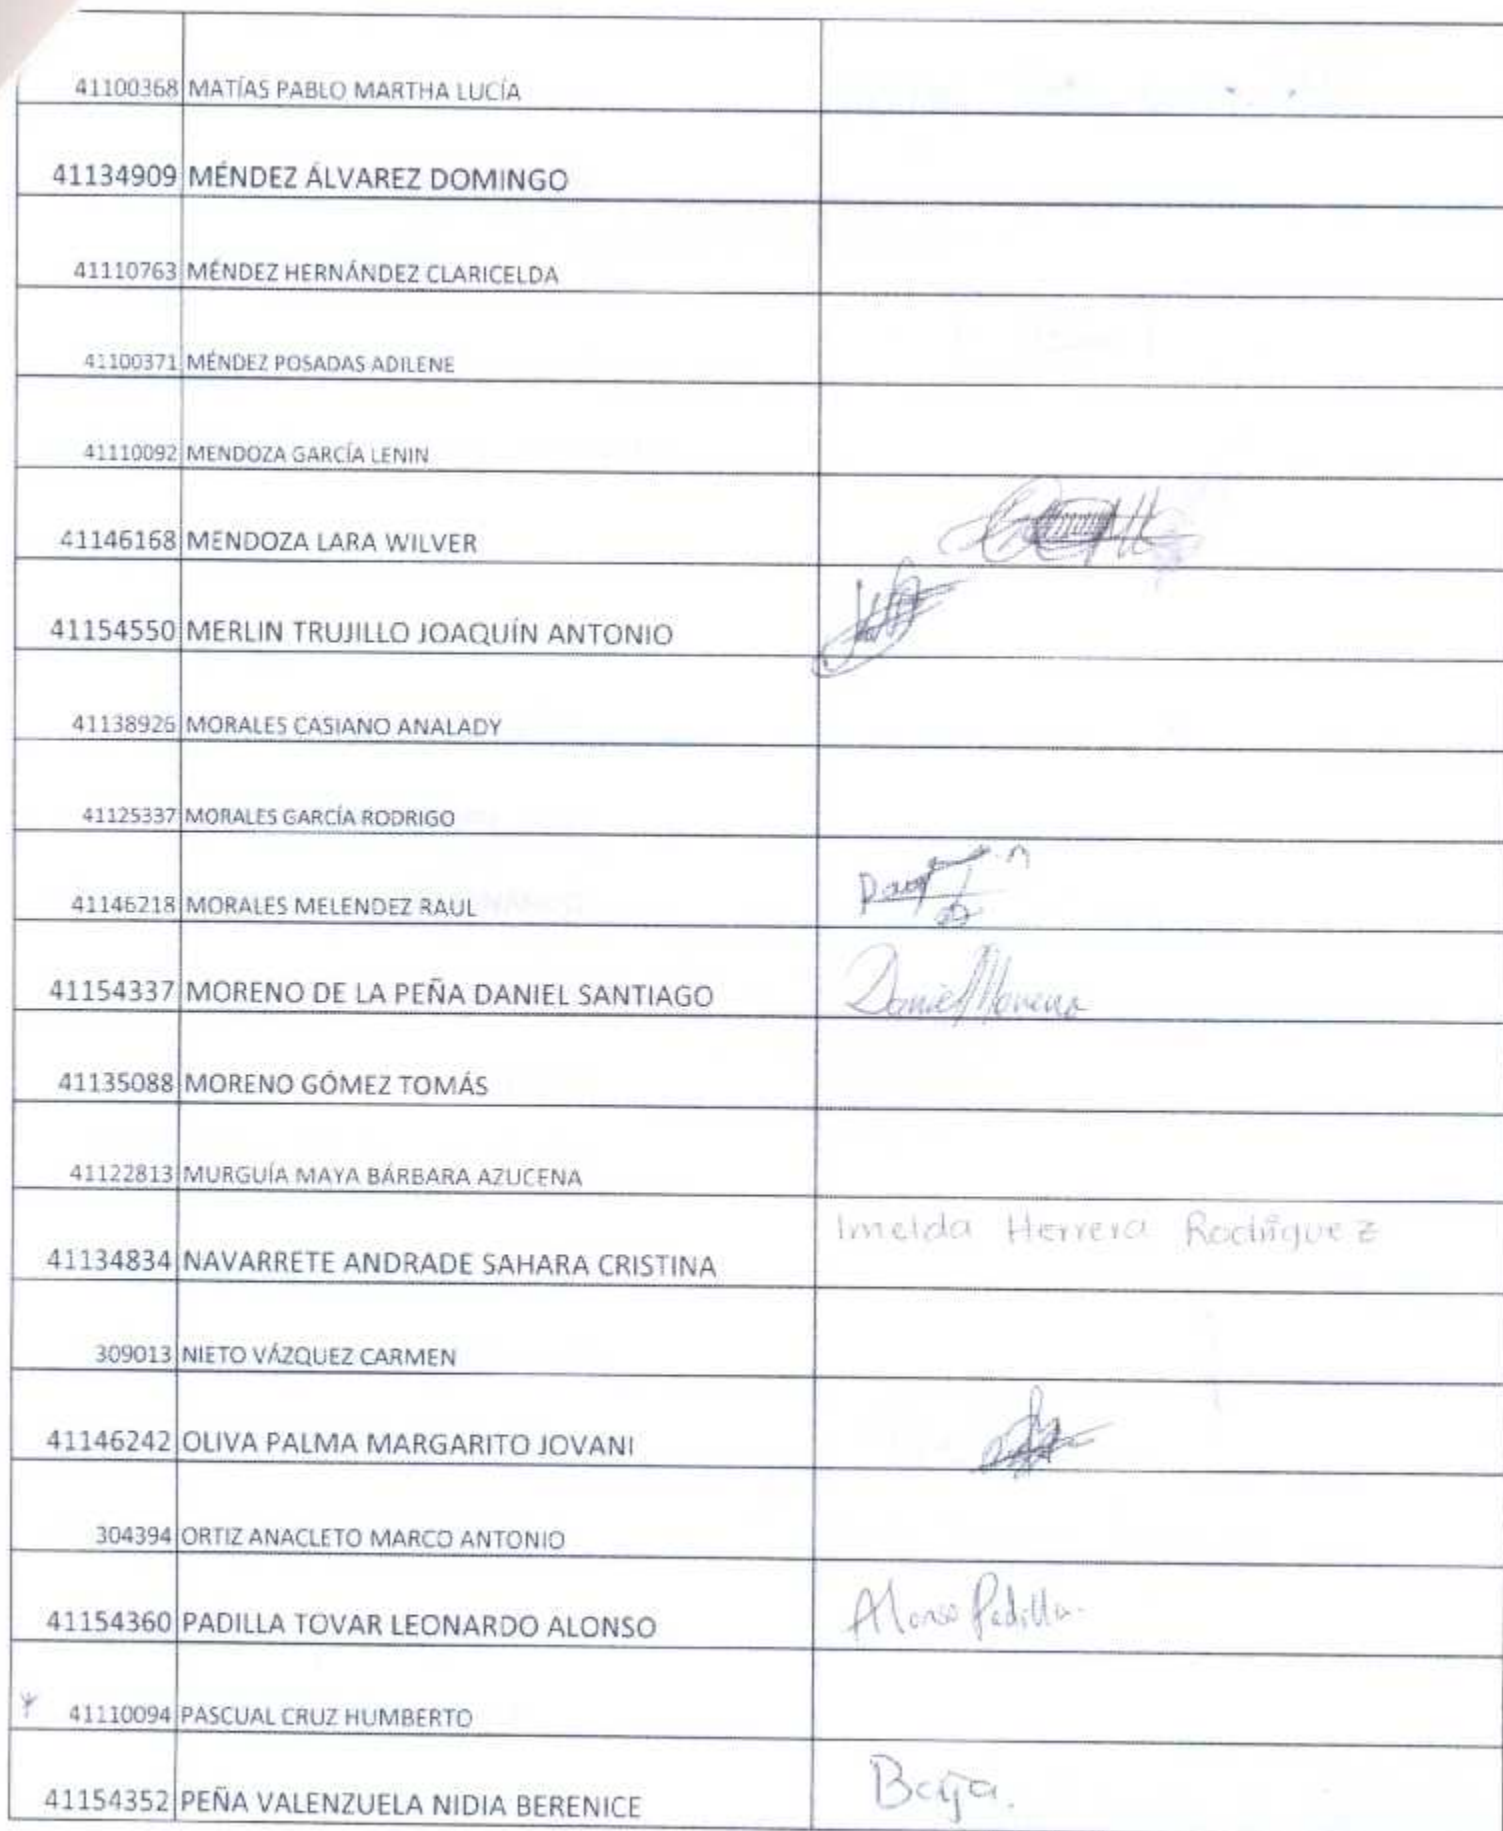 41100368 MATÍAS PABLO MARTHA LUCÍA
41134909 MÉNDEZ ÁLVAREZ DOMINGO
41110763 MÉNDEZ HERNÁNDEZ CLARICELDA
41100371 MÉNDEZ POSADAS ADILENE
41110092 MENDOZA GARCÍA LENIN
41146168 MENDOZA LARA WILVER
41154550 MERLIN TRUJILLO JOAQUÍN ANTONIO
41138926 MORALES CASIANO ANALADY
41125337 MORALES GARCÍA RODRIGO
41146218 MORALES MELENDEZ RAUL
41154337 MORENO DE LA PEÑA DANIEL SANTIAGO Daniel Moreno
41135088 MORENO GÓMEZ TOMÁS
41122813 MURGUÍA MAYA BÁRBARA AZUCENA
Imelda Herrera Rodríguez
41134834 NAVARRETE ANDRADE SAHARA CRISTINA
309013 NIETO VÁZQUEZ CARMEN
41146242 OLIVA PALMA MARGARITO JOVANI
304394 ORTIZ ANACLETO MARCO ANTONIO
41154360 PADILLA TOVAR LEONARDO ALONSO Alonso Padilla.
41110094 PASCUAL CRUZ HUMBERTO
41154352 PEÑA VALENZUELA NIDIA BERENICE Baja.